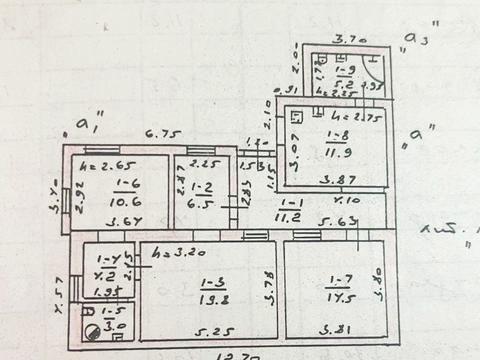 3.70
"а3"
2.0
1.72
1-9
5.2
2.95
h=2.25
0.91
2.10
h=2.75
"а"
"а1"
6.75
1.20
3.07
1-8
11.9
h=2.65
2.25
1.53
2.87
1.15
3.40
2.92
1-6
10.6
1-2
6.5
2.83
3.87
4.10
1-1
11.2
3.64
5.63
h=3.20
1-4
4.2
2.15
1.95
4.57
1-3
19.8
3.78
1-7
14.5
3.80
1-5
3.0
5.25
3.81
12.70